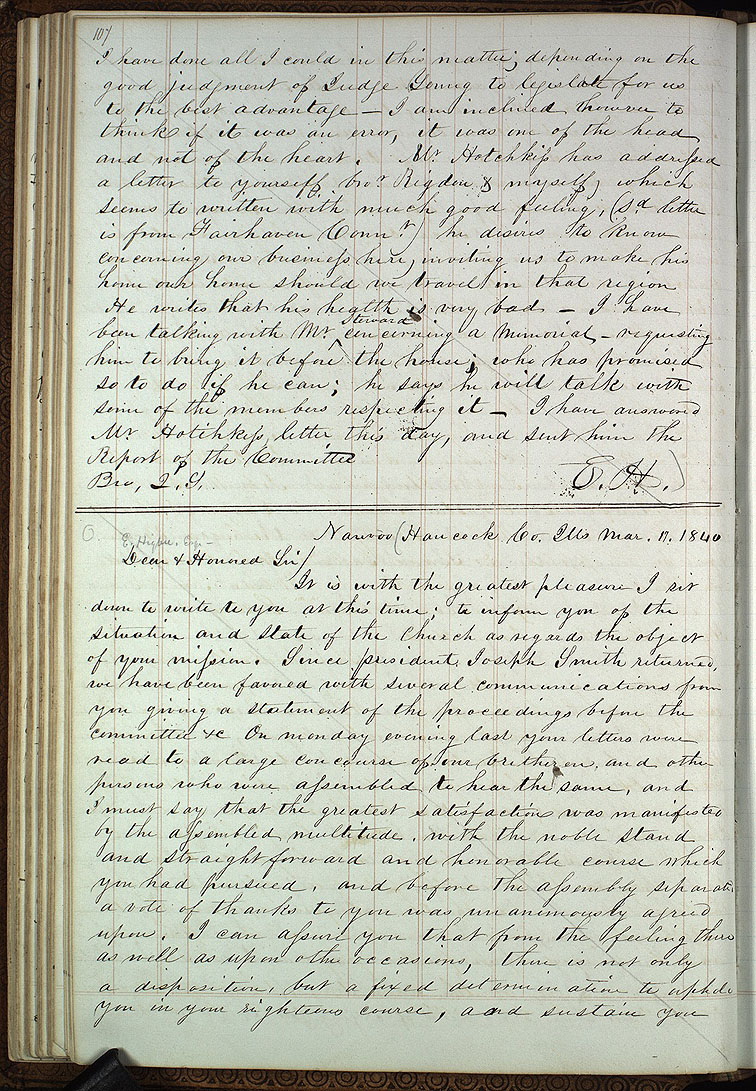 107
I have done all I could in this matter; depending on the
good judgment of Judge Young to legislate for us
to the best advantage — I am inclined however to
think if it was an error, it was one of the head
and not of the heart. Mr. Hotchkiss has addressed
a letter to yourself, bror. Rigdon, & myself, which
seems to written with much good feeling, (sd. letter
is from Fairhaven Connt.) he desires to know
concerning our business here, inviting us to make his
home our home should we travel in that region
He writes that his health is very bad — I have
been talking with Mr. Steward concerning a Memorial — requesting
him to bring it before the house; who has promised
so to do if he can; he says he will talk with
some of the members respecting it — I have answered
Mr. Hotchkiss, letter this day, and sent him the
Report of the Committee
Bro, J. S. E. H.)
O. E. Higbee. Esqr—
Nauvoo (Hancock Co. Ills Mar. 17. 1840
Dear & Honored Sir/
It is with the greatest pleasure I sit
down to write to you at this time; to inform you of the
situation and state of the Church as regards the object
of your mission. Since president Joseph Smith returned,
we have been favored with several communications from
you giving a statement of the proceedings before the
committee &c On monday evening last your letters were
read to a large concourse of our bretheren, and other
persons who were assembled to hear the same, and
I must say that the greatest satisfaction was manifested
by the assembled multitude, with the noble stand
and straightforward and honorable course which
you had pursued, and before the assembly separated
a vote of thanks to you was unanimously agreed
upon. I can assure you that from the feeling there
as well as upon othe occasions, there is not only
a disposition, but a fixed determination to uphold
you in your righteous course, and sustain you